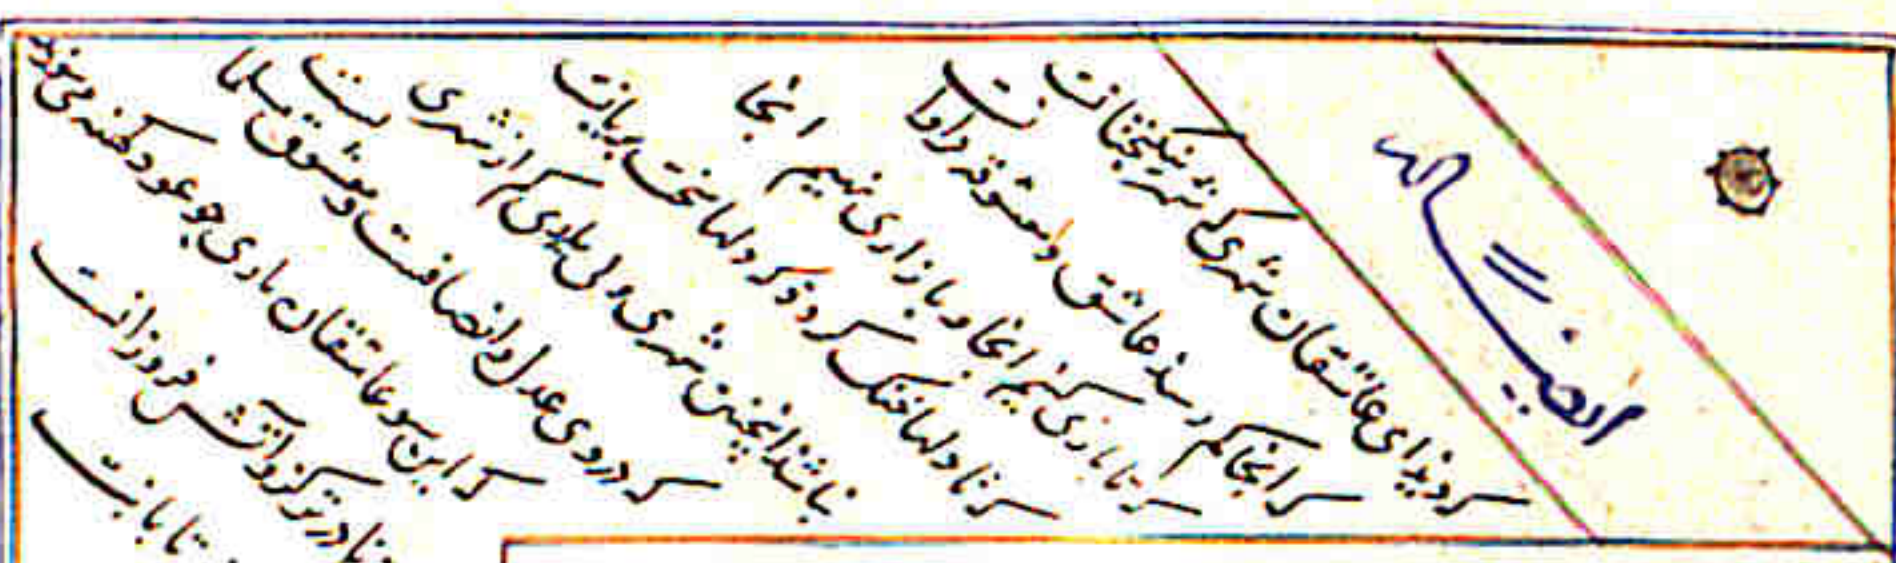 ایضا له
که دید ای عاشقان شهری که شهر نیکبختانست
که آنجا کم رسد عاشق و معشوقه فراوانست
که تا نازی کنیم آنجا و بازاری نهیم آنجا
که تا دلها خنک گردد که دلها سخت بریانست
نباشد اینچنین شهری ولی باری کم از شهری
که در وی عدل و انصافست و معشوق مسلمانست
که این سو عاشقان باری چو عود کهنه می سوزد
نادرتر کزو آتش فروزانست
تابانست